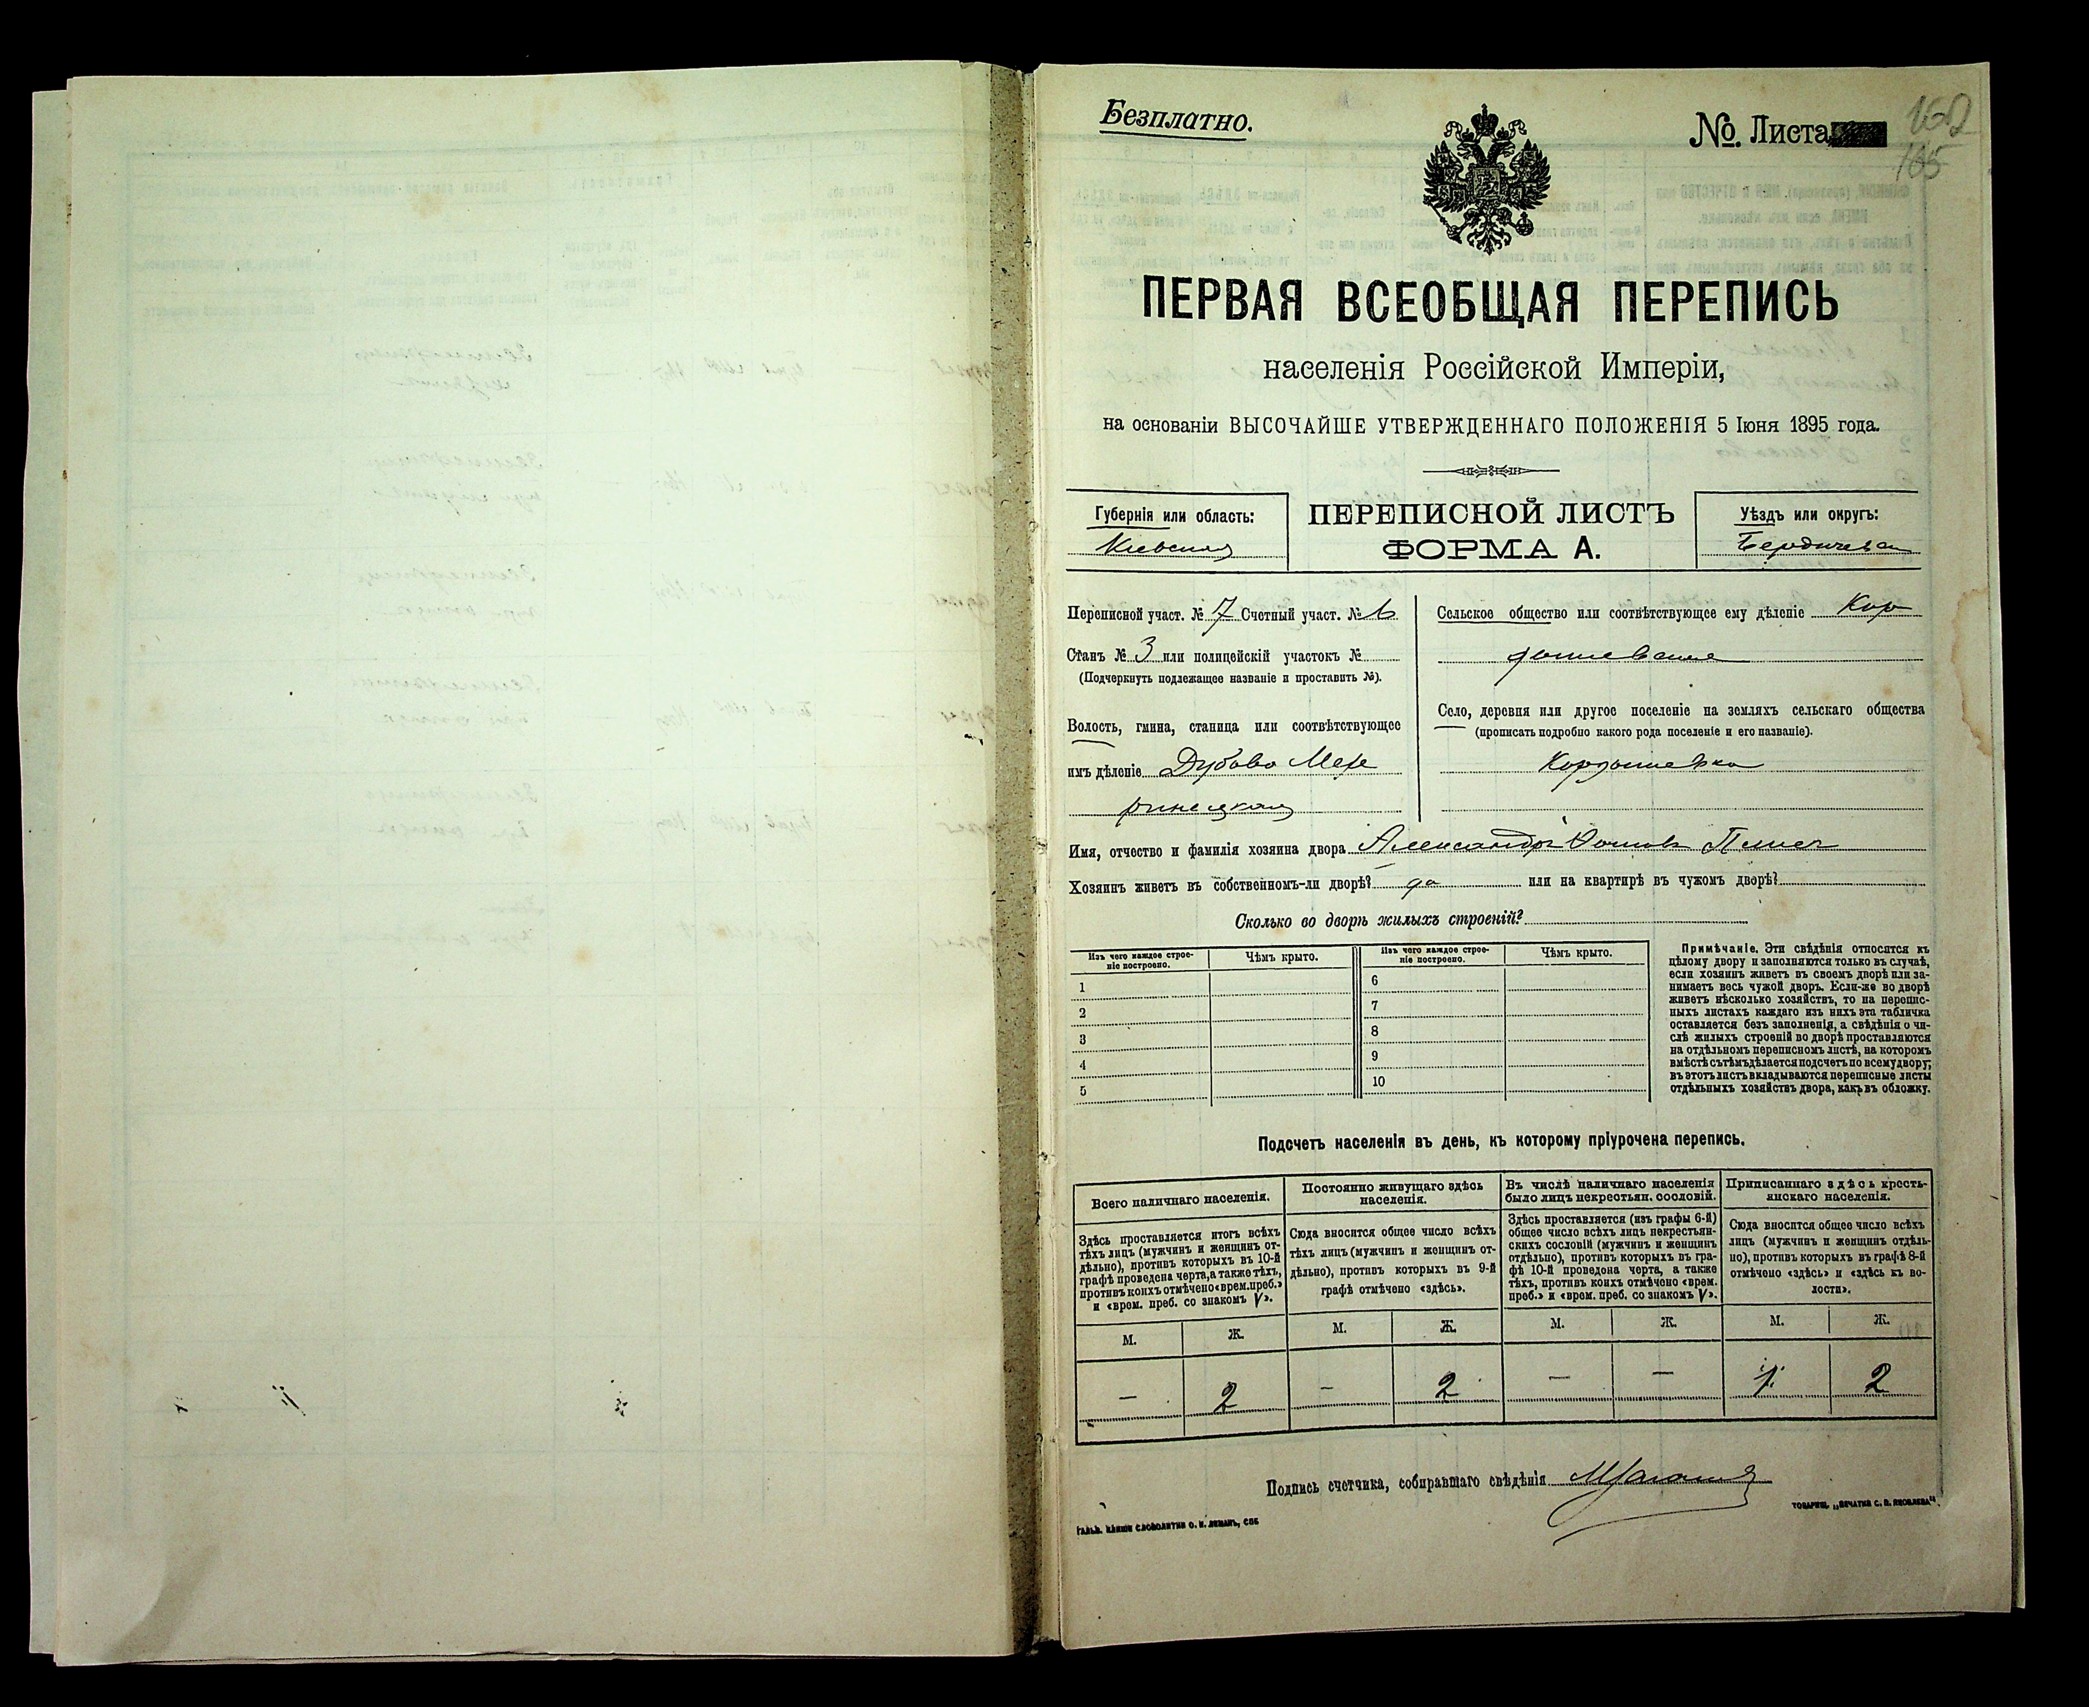 Безплатно.
№. Листа
162
165
ПЕРВАЯ ВСЕОБЩАЯ ПЕРЕПИСЬ
населенія Россійской Имперіи,
на основаніи ВЫСОЧАЙШЕ УТВЕРЖДЕННАГО ПОЛОЖЕНІЯ 5 Іюня 1895 года.
Губернія или область:
Кіевская
ПЕРЕПИСНОЙ ЛИСТЪ
ФОРМА А.
Уѣздъ или округъ:
Бердичевск
Переписной участ. № 7 Счетный участ. № 6
Станъ № 3 или полицейскій участокъ №
(Подчеркнуть подлежащее названіе и проставить №).
Волость, гмина, станица или соотвѣтствующее
имъ дѣленіе Дубово Меже
ринецкая
Сельское общество или соотвѣтствующее ему дѣленіе Кор
дышевская
Село, деревня или другое поселеніе на земляхъ сельскаго общества
(прописать подробно какого рода поселеніе и его названіе).
Кордышевка
Имя, отчество и фамилія хозяина двора Александръ
Хозяинъ живетъ въ собственномъ-ли дворѣ? да или на квартирѣ въ чужомъ дворѣ?
Сколько во дворѣ жилыхъ строеній?
Изъ чего каждое строе-
ніе построено.
Чѣмъ крыто.
Изъ чего каждое строе-
ніе построено.
Чѣмъ крыто.
1
2
3
4
5
6
7
8
9
10
Примѣчаніе. Эти свѣдѣнія относятся къ
цѣлому двору и заполняются только въ случаѣ,
если хозяинъ живетъ въ своемъ дворѣ или за-
нимаетъ весь чужой дворъ. Если-же во дворѣ
живетъ нѣсколько хозяйствъ, то на перепис-
ныхъ листахъ каждаго изъ нихъ эта табличка
оставляется безъ заполненія, а свѣдѣнія о чи-
слѣ жилыхъ строеній во дворѣ проставляются
на отдѣльномъ переписномъ листѣ, на которомъ
вмѣстѣ съ тѣмъ дѣлается подсчетъ по всему двору;
въ этотъ листъ вкладываются переписные листы
отдѣльныхъ хозяйствъ двора, какъ въ обложку.
Подсчетъ населенія въ день, къ которому пріурочена перепись.
Всего наличнаго населенія.
Здѣсь проставляется итогъ всѣхъ
тѣхъ лицъ (мужчинъ и женщинъ от-
дѣльно), противъ которыхъ въ 10-й
графѣ проведена черта, а также тѣхъ,
противъ коихъ отмѣчено «врем. преб.»
и «врем. преб. со знакомъ V».
Постоянно живущаго здѣсь
населенія.
Сюда вносится общее число всѣхъ
тѣхъ лицъ (мужчинъ и женщинъ от-
дѣльно), противъ которыхъ въ 9-й
графѣ отмѣчено «здѣсь».
Въ числѣ наличнаго населенія
было лицъ некрестьян. сословій.
Здѣсь проставляется (изъ графы 6-й)
общее число всѣхъ лицъ некрестьян-
скихъ сословій (мужчинъ и женщинъ
отдѣльно), противъ которыхъ въ гра-
фѣ 10-й проведена черта, а также
тѣхъ, противъ коихъ отмѣчено «врем.
преб.» и «врем. преб. со знакомъ V».
Приписаннаго здѣсь кресть-
янскаго населенія.
Сюда вносится общее число всѣхъ
лицъ (мужчинъ и женщинъ отдѣль-
но), противъ которыхъ въ графѣ 8-й
отмѣчено «здѣсь» и «здѣсь къ во-
лости».
М. Ж. М. Ж. М. Ж. М. Ж.
— 2 — 2 — — 1 2
Подпись счетчика, собиравшаго свѣдѣнія
ГАЛЬВ. КЛИШЕ СЛОВОЛИТНИ О. И. ЛЕМАНЪ, СПБ
ТОВАРИЩ. „ПЕЧАТНЯ С. П. ЯКОВЛЕВА“.